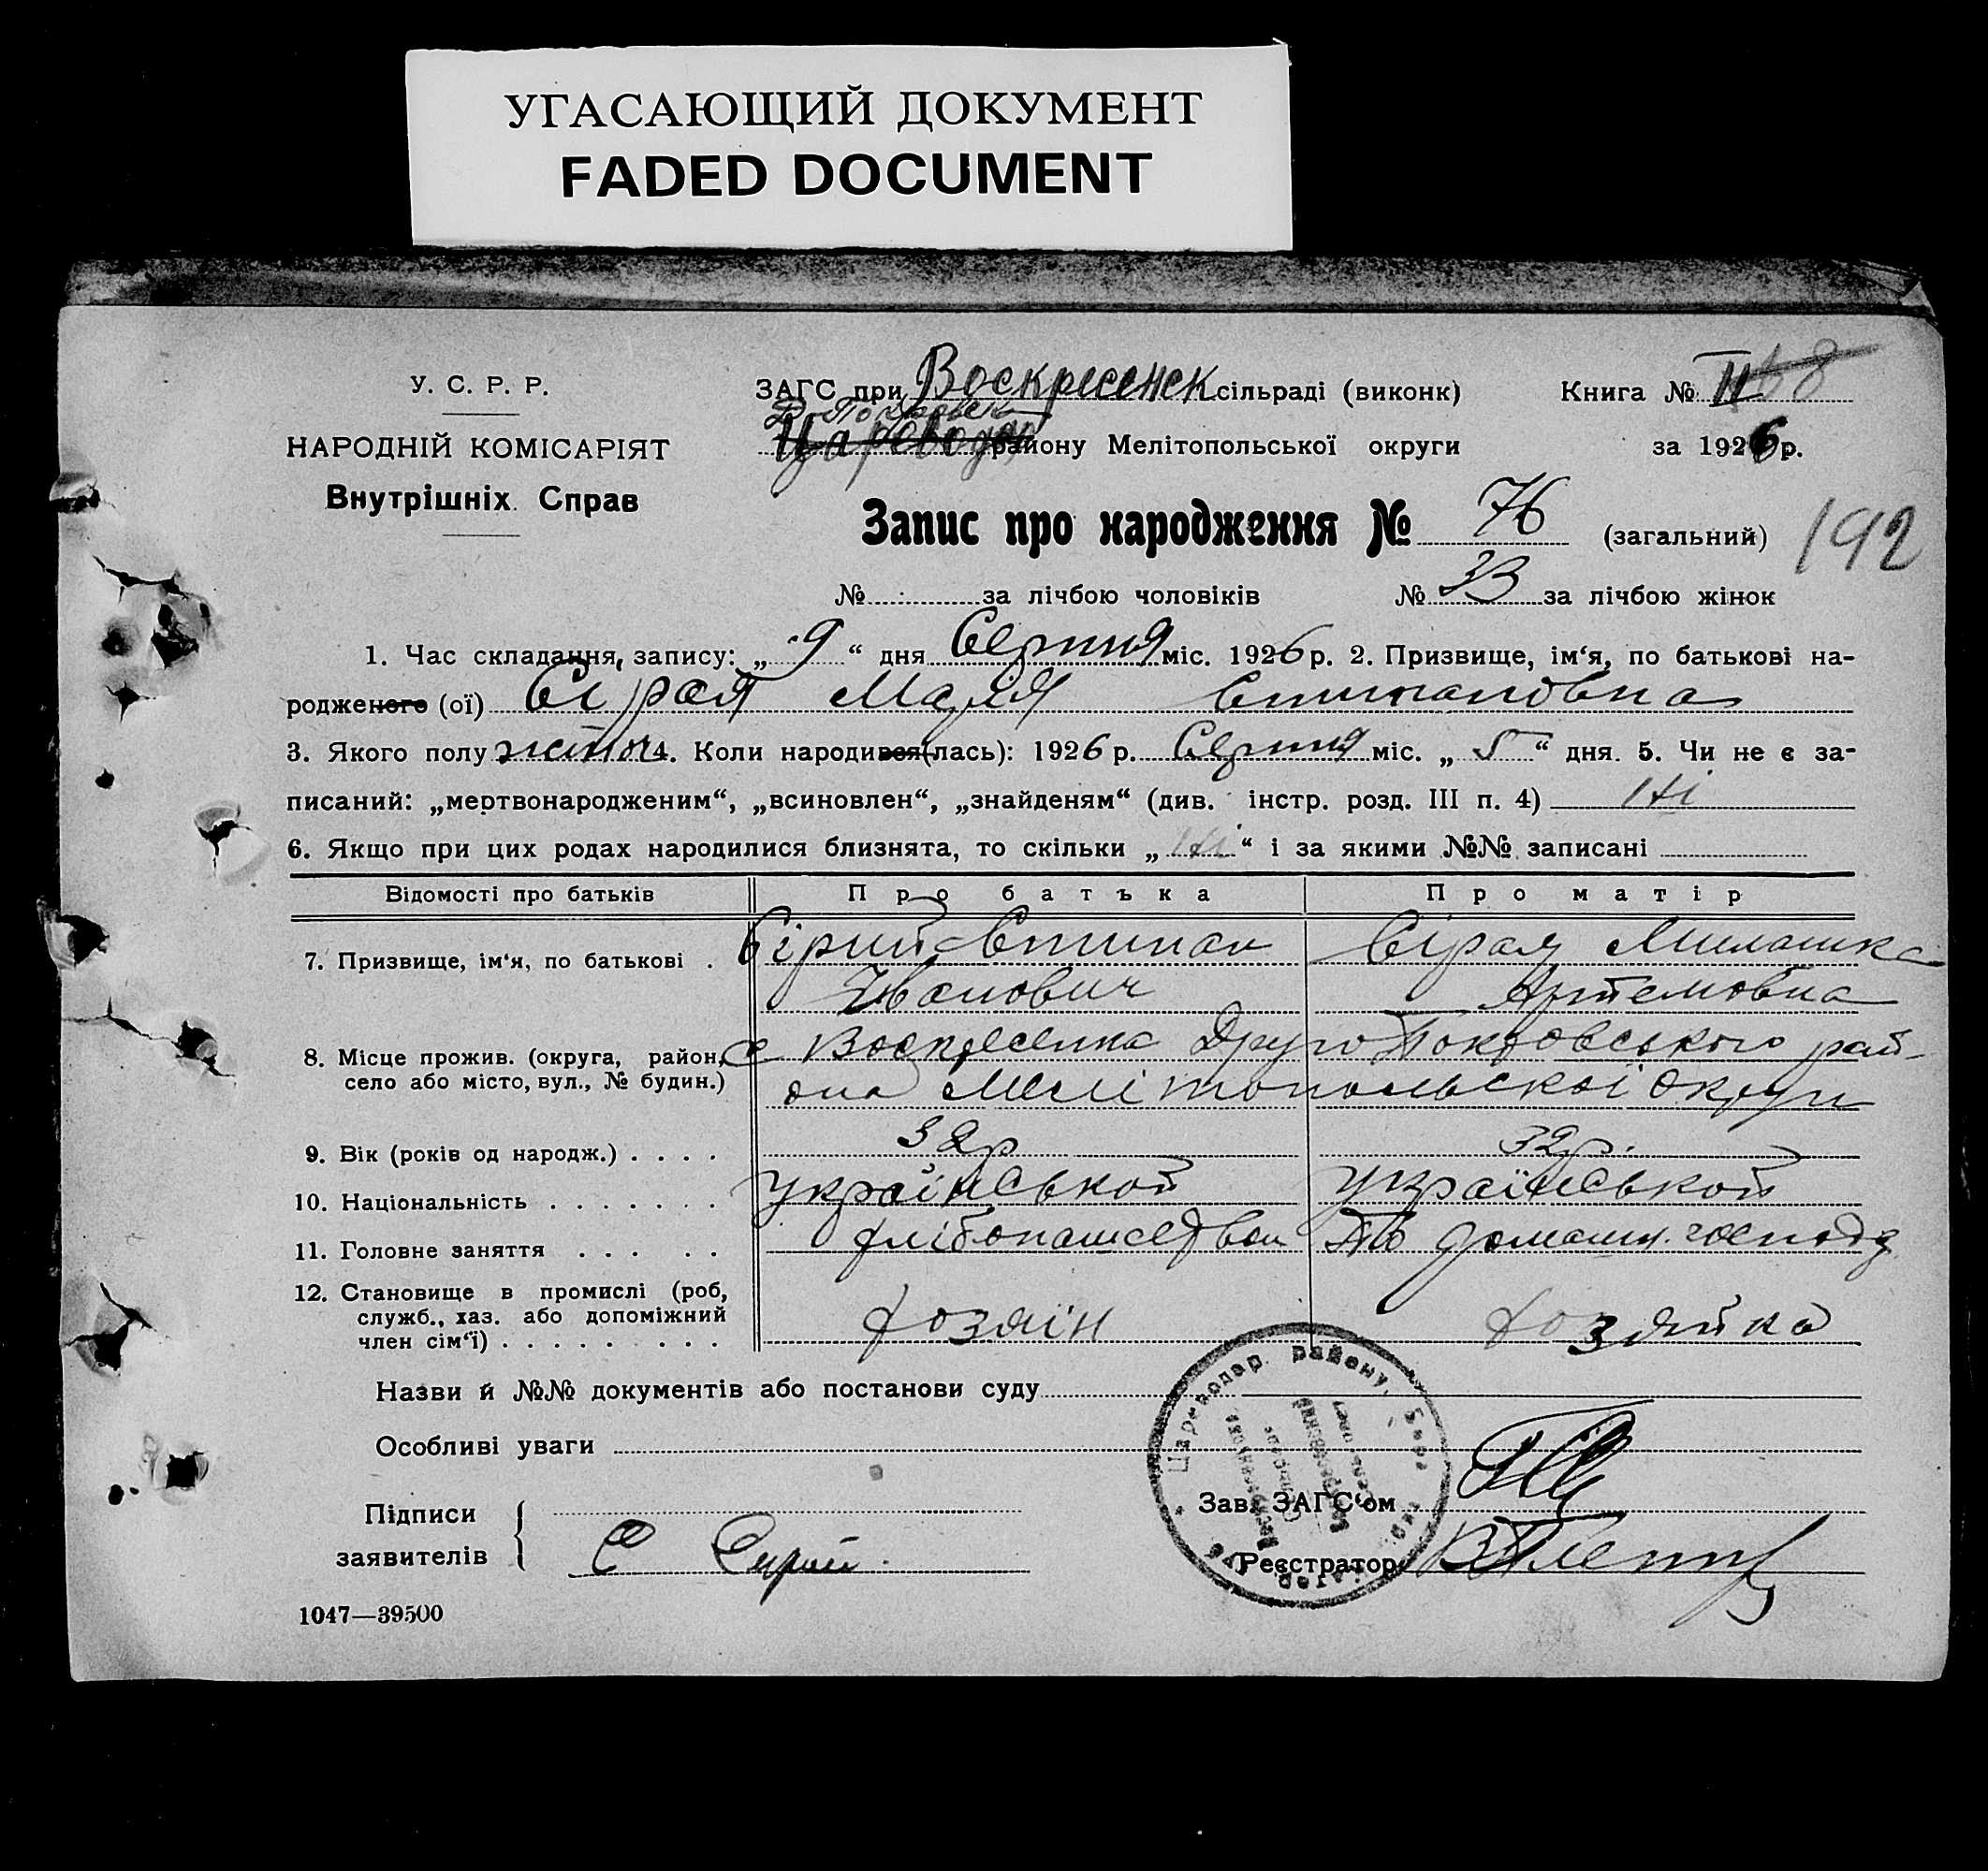 УГАСАЮЩИЙ ДОКУМЕНТ
FADED DOCUMENT
У. С. Р. Р.
НАРОДНІЙ КОМІСАРІЯТ
Внутрішніх Справ
ЗАГС при Воскресенск сільраді (виконк)
Книга № II 68
Др-Покровск
Цареводар району Мелітопольської округи
за 1926 р.
Запис про народження № 76 (загальний)
192
№ за лічбою чоловіків № 33 за лічбою жінок
1. Час складання, запису: „9“ дня Серпня міс. 1926 р. 2. Призвище, ім‘я, по батькові на-
родженого (ої) Сірая Марія Степановна
3. Якого полу жіноч 4. Коли народився(лась): 1926 р. Серпня міс. „5“ дня. 5. Чи не є за-
писаний: „мертвонародженим“, „всиновлен“, „знайденям“ (див. інстр. розд. III п. 4) Ні
6. Якщо при цих родах народилися близнята, то скільки „Ні“ і за якими №№ записані
Відомості про батьків Про батька Про матір
7. Призвище, ім‘я, по батькові . Сірий Степан Сірая Милашка
Іванович Артемовна
8. Місце прожив. (округа, район, село або місто, вул., № будин.) с Воскресенка Друго Покровського рай-
она Мелітопольскої округи
9. Вік (років од народж.) . . . . 32р 32р.
10. Національність . . . . . . . українськой українськой
11. Головне заняття . . . . . хлібопашество домашн. господ
12. Становище в промислі (роб,
служб., хаз. або допоміжний
член сім‘ї) . . . . . . . . . хозяін хозяйка
Назви й №№ документів або постанови суду
Особливі уваги
Цареводар. району
Підписи
заявителів
С Сирий.
Зав. ЗАГС‘ом
Реєстратор
1047—39500